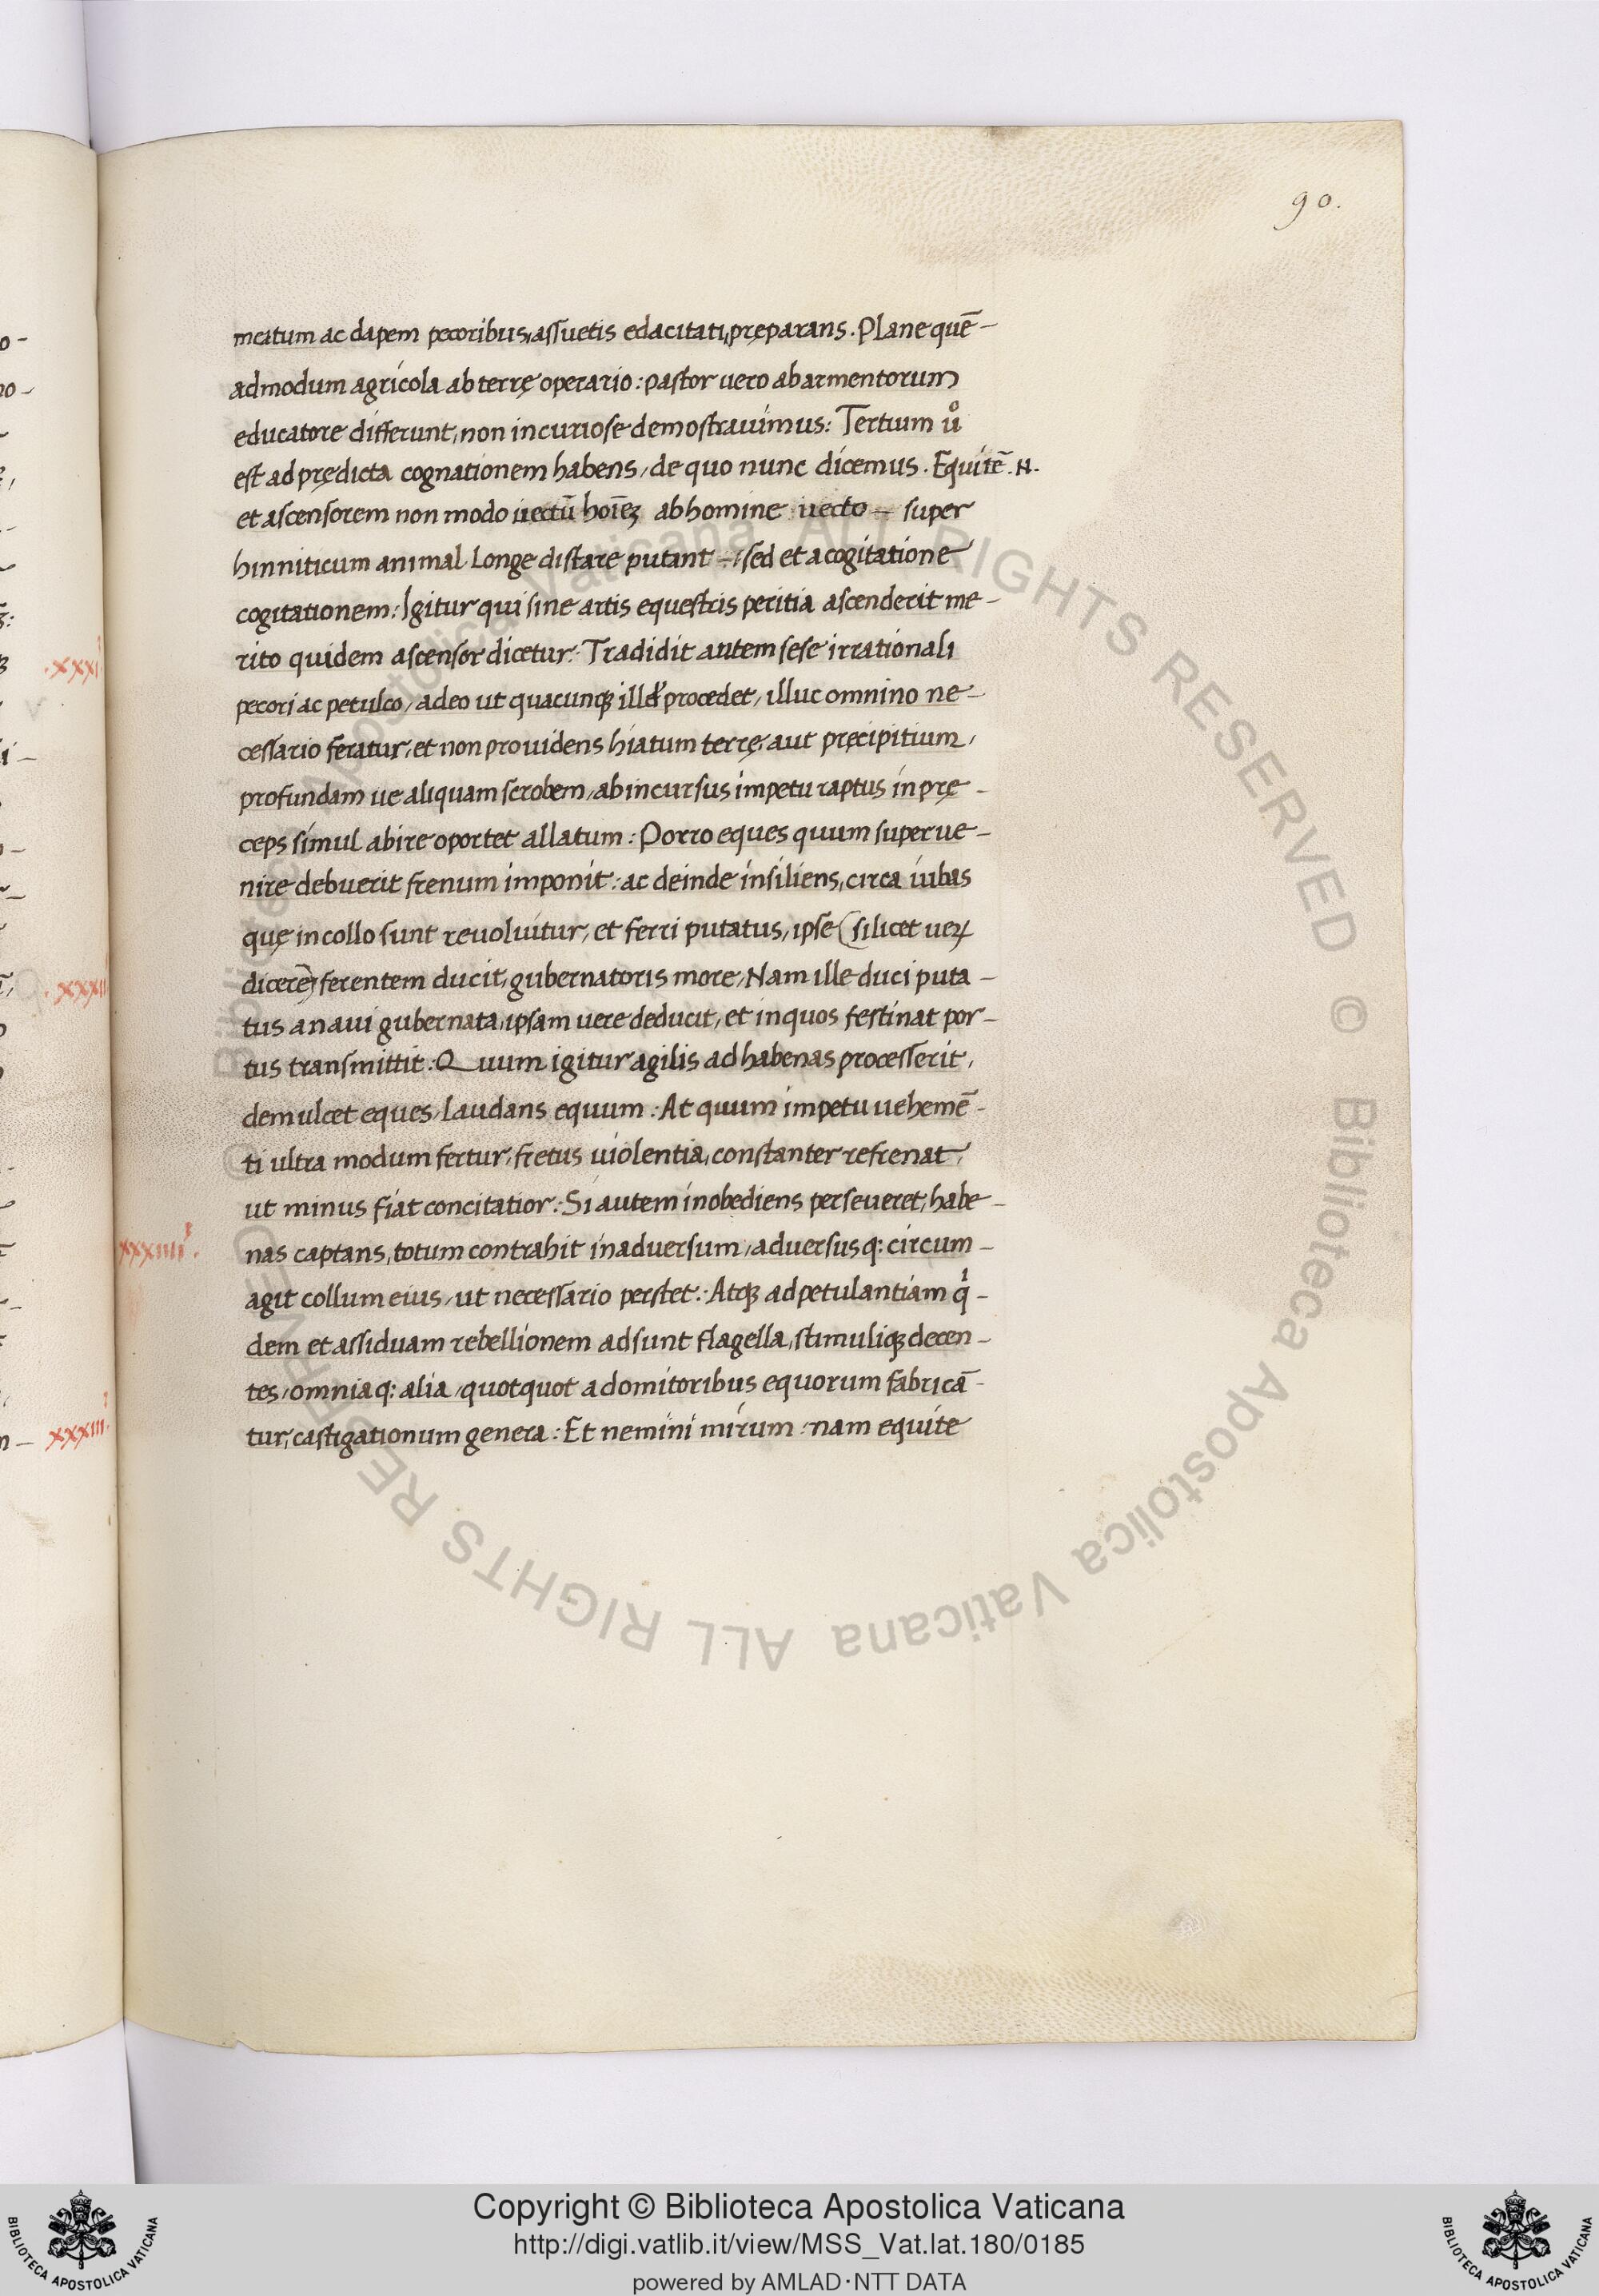 90.
mcatum ac dapem pecoribus, assuetis edacitati, pręparans. Plane quē–
admodum agricola ab terrę operario: pastor uero ab armentorum
educatore differunt, non incuriose demostrauimus: Tertium u̇o
est ad prędicta cognationem habens, de quo nunc dicemus. Equitē. N.
et ascensorem non modo uectū hoīez ab homine uecto – super
hinniticum animal longe distare putant –, sed et a cogitatione
cogitationem: Igitur qui sine artis equestris peritia ascenderit me–
rito quidem ascensor dicetur: Tradidit autem sese irrationali
pecori ac petulco, adeo ut quacunqꝫ procedet, illuc omnino ne–
cessario feratur, et non prouidens hiatum terrę, aut pręcipitium,
profundam ue aliquam scrobem, ab incursus impetu raptus in prę–
ceps simul abire oportet allatum: Porro eques quum superue–
nire debuerit frenum imponit: ac deinde insiliens, circa iubas
quę in collo sunt reuoluitur, et ferri putatus, ipse (silicet ueꝝ
dicerē) ferentem ducit, gubernatoris more, Nam ille duci puta–
tus a naui gubernata, ipsam uere deducit, et in quos festinat por–
tus transmittit: Quum igitur agilis ad habenas processerit,
demulcet eques, laudans equum: At quum impetu uehemē–
ti ultra modum fertur, fretus uiolentia, constanter refrenat,
ut minus fiat concitatior: Si autem inobediens perseueret, habe–
xxxiiii.
nas captans, totum contrahit in aduersum, aduersusq: circum–
agit collum eius, ut necessario perstet: Atqꝫ ad petulantiam qⁱ–
dem et assiduam rebellionem adsunt flagella, stimuliqꝫ decen–
tes, omniaq: alia, quotquot a domitoribus equorum fabricā–
tur, castigationum genera: Et nemini mirum: nam equite
.xxxi
.xxxii
xxxiii.
© Biblioteca Apostolica Vaticana ALL RIGHTS RESERVED © Biblioteca Apostolica Vaticana ALL RIGHTS RESERVED
Copyright © Biblioteca Apostolica Vaticana
http://digi.vatlib.it/view/MSS_Vat.lat.180/0185
powered by AMLAD·NTT DATA
BIBLIOTECA APOSTOLICA VATICANA
BIBLIOTECA APOSTOLICA VATICANA